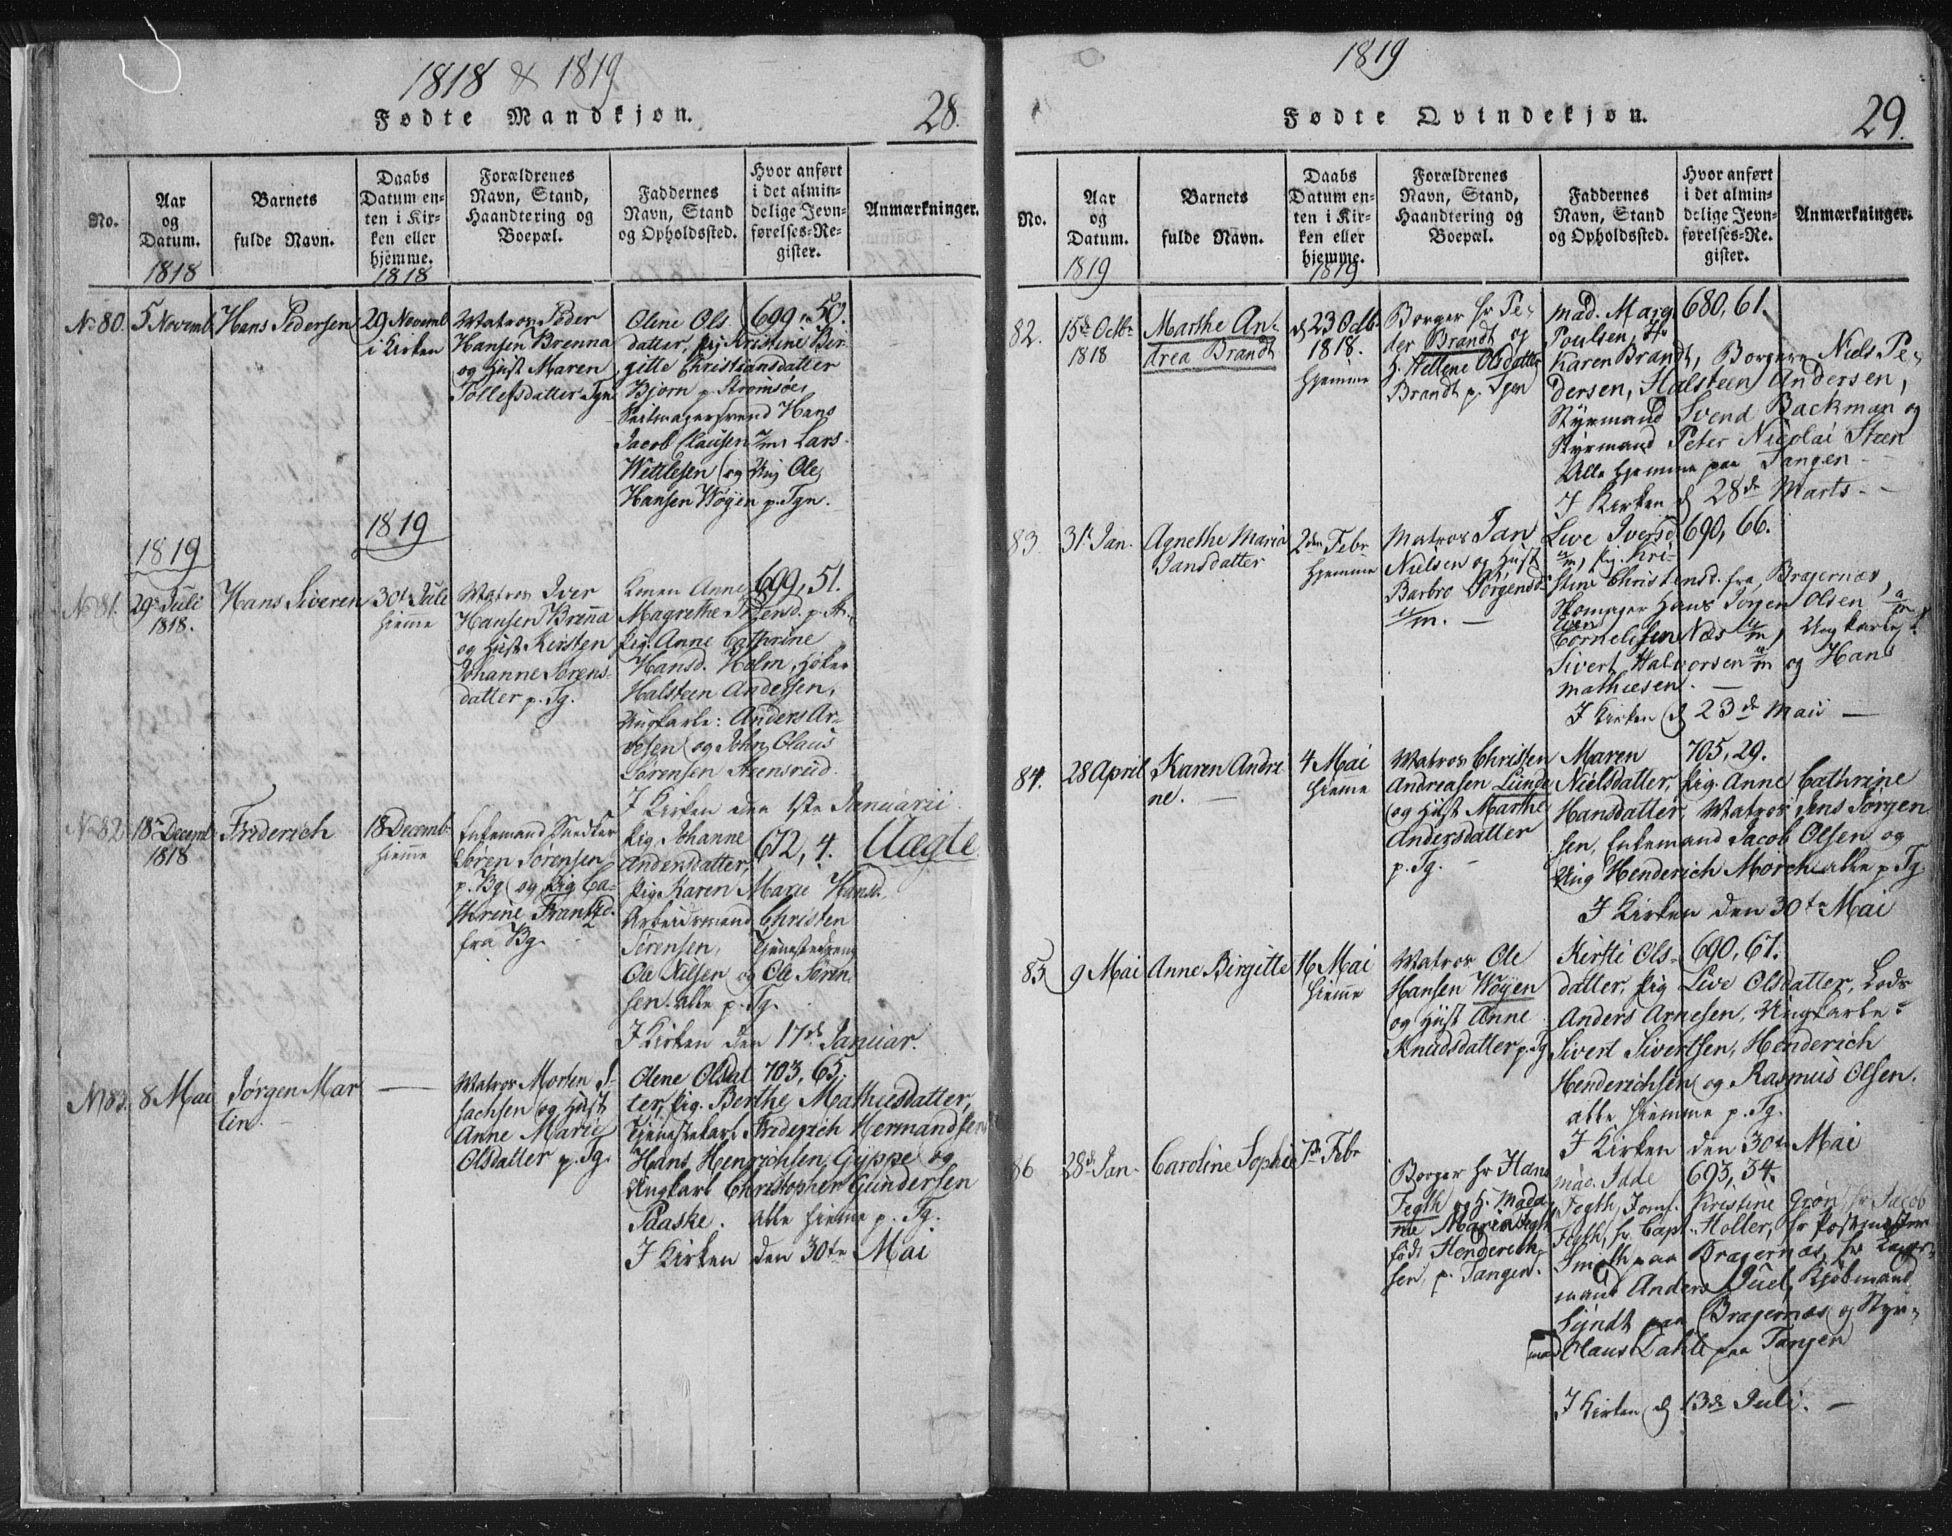 1818 & 1819
Fødte Mandkjøn.
28.
No.
Aar
og
Datum.
1818
Barnets
fulde Navn.
Daabs
Datum en-
ten i Kir-
ken eller
hjemme.
1818
Forældrenes
Navn, Stand,
Haandtering og
Boepæl.
Faddernes
Navn, Stand
og Opholdssted.
Hvor anført
i det almin-
delige Jevn-
førelses-Re-
gister.
Anmærkninger.
No 80.
5 Novemb
Hans Pedersen
29 Novemb
i Kirken
Matros Peder
Hansen Brenna
og Hust Maren
Tollefsdatter Tgn
Olene Ols
datter, pig Kristine Bir-
gitte Christiansdatter
Bjørn p Strømsøe,
Seilmagersvend Hans
Jacob Clausen, Lars
Wettlesen og Ung Ole
Hansen Wøyen p. Tgn.
699, 50.
1819
1819
No 81.
29 Juli
1818.
Hans Siveren
30t Juli
hiemme
Matros Iver
Hansen Brenna
og Hust Kirsten
Johanne Sørens-
datter p. Tg.
Konen Anne
Magrethe
pig. Anne Cathrine
Hansd. Holm, Høker
Halsteen Andersen,
Ungkarle: Anders Ar-
nesen og John Claus
Sørensen Steensrud.
I Kirken den 1ste Januarii.
699, 51.
No 82
18 Decemb
1818
Friderich
18 Decemb
hiemme
Enkemand Snedker
Søren Sørensen
p. Bg og pig Ca-
thrine Frantzd.
fra Bg.
pig Johanne
Andersdatter,
pig Karen Marie Hansd.
Arbeidsmand Christen
Sørensen, Tjenestedreng
Ole Palsen og Ole Søren-
sen alle p. Tg.
I Kirken den 17de Januar.
672, 4.
Uægte
No 83.
8 Mai
Jørgen Mar
tin.
Matros Morten I-
sachsen og Hust
Anne Marie
Olsdatter p. Tg.
Olene Olsdat
ter, pig. Berthe Mathiesdatter,
Tjenestekarl Friderich Hermandsen
Hans Henrichsen Gyppe og
Ungkarl Christopher Gundersen
Paaske. alle hiemme p. Tg.
I Kirken den 30te Mai
703, 65.
1819
Fødte Qvindekjøn.
29.
No.
Aar
og
Datum.
1819
Barnets
fulde Navn.
Daabs
Datum en-
ten i Kir-
ken eller
hjemme.
1819
Forældrenes
Navn, Stand,
Haandtering og
Boepæl.
Faddernes
Navn, Stand
og Opholdssted.
Hvor anført
i det almin-
delige Jevn-
førelses-Re-
gister.
Anmærkninger.
82.
15de Octbr
1818
Marthe An-
drea Brandt
d 23 Octb.
1818.
Hjemme
Borger Hr Pe-
der Brandt og
H. Hellene Olsdatter
Brandt p. Tgen
Mad. Marg
Poulsen, Fr
Karen Brandt, Borgere Niels Pe-
dersen, Halsteen Andersen,
Styrmand Svend Backman og
Styrmand Peter Nicolai Steen
Alle hjemme paa Tangen
I Kirken d 28de Marts.
680, 61.
83.
31t Jan.
Agnethe Maria
Jansdatter
2den Febr
hjemme
Matros Jan
Nielsen og Hust
Barbro Jørgensd
Live Iversd
pig. Kri-
stine Christensd. fra Bragernæs,
Hans Jørgen Olsen
Even
Cornelisen Næs Ungkarle
Sivert Halvorsen og Hans
Mathiesen.
I Kirken d 23de Maii
690, 66.
84.
28 April
Karen Andri
ne.
4 Mai
hieme
Matros Christen
Andreasen Lunde
og Hust Marthe
Andersdatter
p. Tg.
Maren
Nielsdatter, pig. Anne Cathrine
Hansdatter, Matros Jens Jørgen
sen, Enkemand Jacob Olsen og
Ung Henderich Morch alle p Tg
I Kirken den 30te Mai
705, 29.
85
9 Mai
Anne Birgitte
16 Mai
hieme
Matros Ole
Hansen Wøyen
og Hust Anne
Knudsdatter p. Tg
Kirsti Ols-
datter, pig Live Olsdatter, Lods
Anders Arnesen, Ungkarle:
Sivert Sivertsen, Henderich
Henderichsen og Rasmus Olsen.
alle hiemme p. Tg.
I Kirken den 30te Mai
690, 67.
86
28de Jan
Caroline Sophie
Febr
Borger Hr Hans
Fegth og H. Mada-
me Maria Fegth
født Henderich-
sen, p. Tangen.
Mad. Jade
Fegth, Jomf. Kristine Grøn, Hr Jacob
Fegth, Hr Capt. Holter, Hr Postmester
Smith paa Bragernæs, Hr
mand Anders Juel, Kjøbmand
Lyndt paa Bragernæs og Styr-
mand Claus Dahle paa Tangen
I Kirken d 13de Juli.
693, 34.